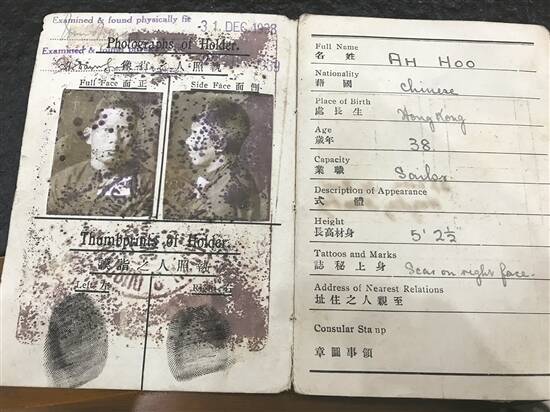 Examined & found physically fit
31 DEC 1938
Examined & found
Photographs of Holder.
像肖之人照執
Full Face 面正
Side Face 面側
Thumbprints of Holder.
模指之人照執
Left 左
Right 右
Full Name
名姓
AH HOO
Nationality
籍國
Chinese
Place of Birth
處長生
Hong Kong
Age
歲年
38.
Capacity
業職
Sailor
Description of Appearance
式體
Height
長高材身
5' 2½"
Tattoos and Marks
誌秘上身
Scar on right face.
Address of Nearest Relations
址住之人親至
Consular Stamp
章圖事領